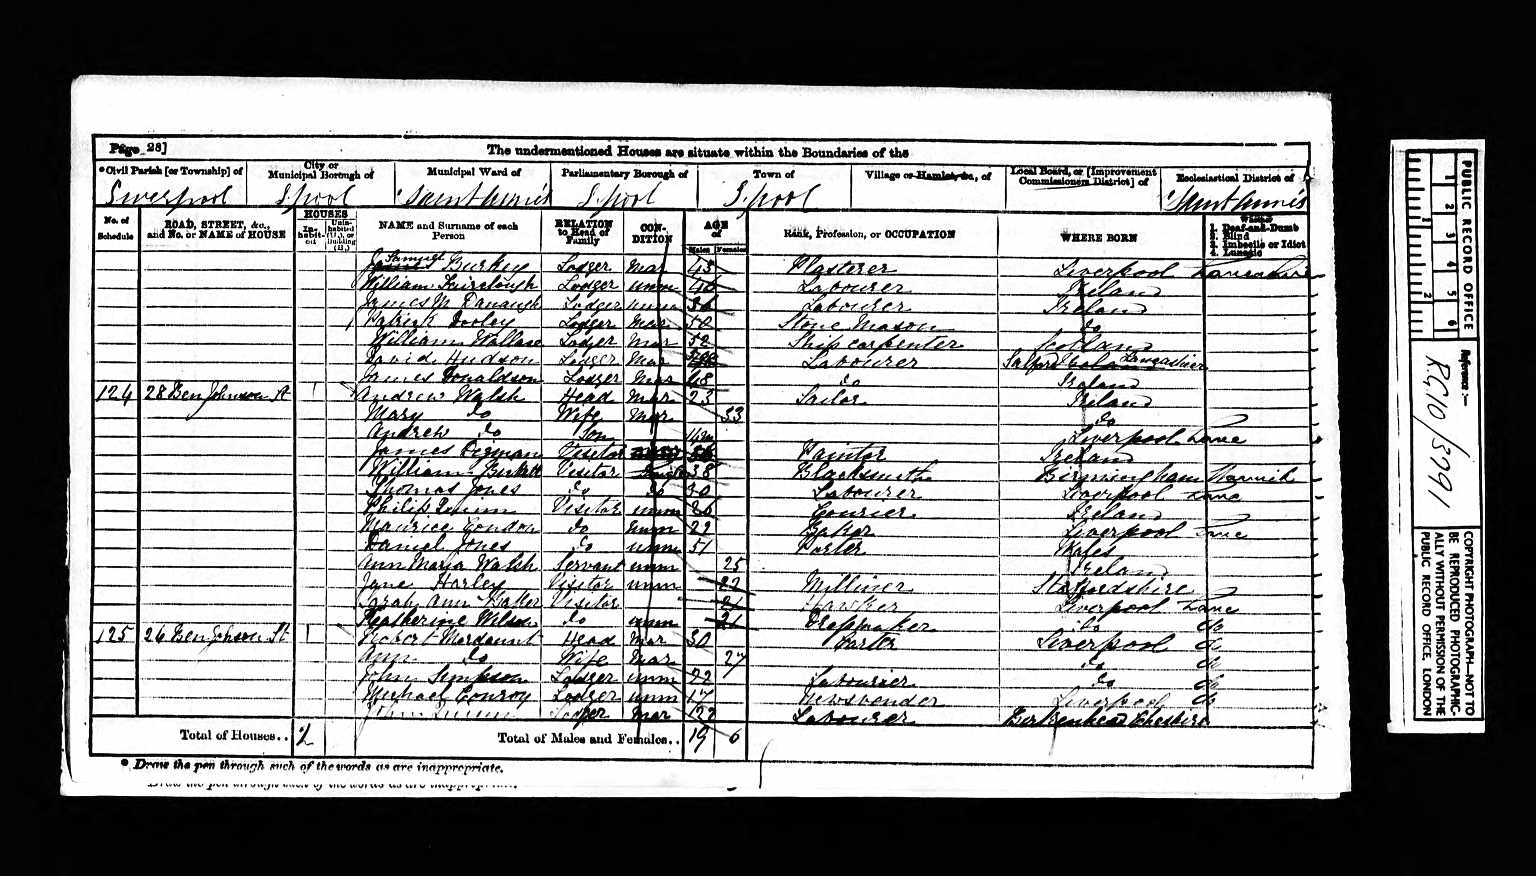 Page 28]
The undermentioned Houses are situate within the Boundaries of the
*Civil Parish [or Township] of
City or Municipal Borough of
Municipal Ward of
Parliamentary Borough of
Town of
Village or Hamlet, &c., of
Local Board, or [Improvement Commissioners District] of
Ecclesiastical District of
Liverpool L.pool Saint Anne's L.pool L.pool Saint Anne's
No. of Schedule
ROAD, STREET, &c., and No. or NAME of HOUSE
HOUSES
Inhabited
Uninhabited (U.), or Building (B.)
NAME and Surname of each Person
RELATION to Head of Family
CONDITION
AGE of
Males Females
Rank, Profession, or OCCUPATION
WHERE BORN
Whether
1. Deaf-and-Dumb
2. Blind
3. Imbecile or Idiot
4. Lunatic
Samuel Burkey Lodger Mar 43 Plasterer Liverpool Lancashire
William Fairclough Lodger unm Labourer Ireland
James Mc Danaugh Lodger unm Labourer Ireland
Patrick Dooley Lodger Mar 50 Stone Mason do
William Wallace Lodger Mar 52 Ship carpenter Scotland
David Hudson Lodger Mar Labourer Salford Lancashire
James Donaldson Lodger Mar 48 do Ireland
124 28 Ben Johnson St 1 Andrew Walsh Head Mar 23 Sailor Ireland
Mary do Wife Mar 33 do
Andrew do Son Liverpool Lanc
James Visitor Painter Ireland
William Visitor 38 Blacksmith Birmingham Warwick
Thomas Jones do do 30 Labourer Liverpool Lanc
Philip Visitor unm 26 Courier Ireland
Maurice Condon do unm 22 Baker Liverpool Lanc
Daniel Jones do unm 51 Porter Wales
Ann Maria Walsh Servant unm 25 Ireland
Jane Harley Visitor unm 22 Milliner Staffordshire
Sarah Ann Visitor 21 Hawker Liverpool Lanc
Katherine Wilson do unm 21 Dressmaker do do
125 26 Ben Johnson St 1 Robert Mordaunt Head Mar 30 Porter Liverpool do
Ann do Wife Mar 27 do do
John Simpson Lodger unm 22 Labourer do do
Michael Conroy Lodger unm 17 Newsvender Liverpool do
John Mar 22 Labourer Birkenhead Cheshire
Total of Houses.. 2
Total of Males and Females.. 19 6
* Draw the pen through such of the words as are inappropriate.
PUBLIC RECORD OFFICE
1 2 3 4 5 6
1 2
Reference :—
RG10/3791
COPYRIGHT PHOTOGRAPH—NOT TO BE REPRODUCED PHOTOGRAPHICALLY WITHOUT PERMISSION OF THE PUBLIC RECORD OFFICE, LONDON